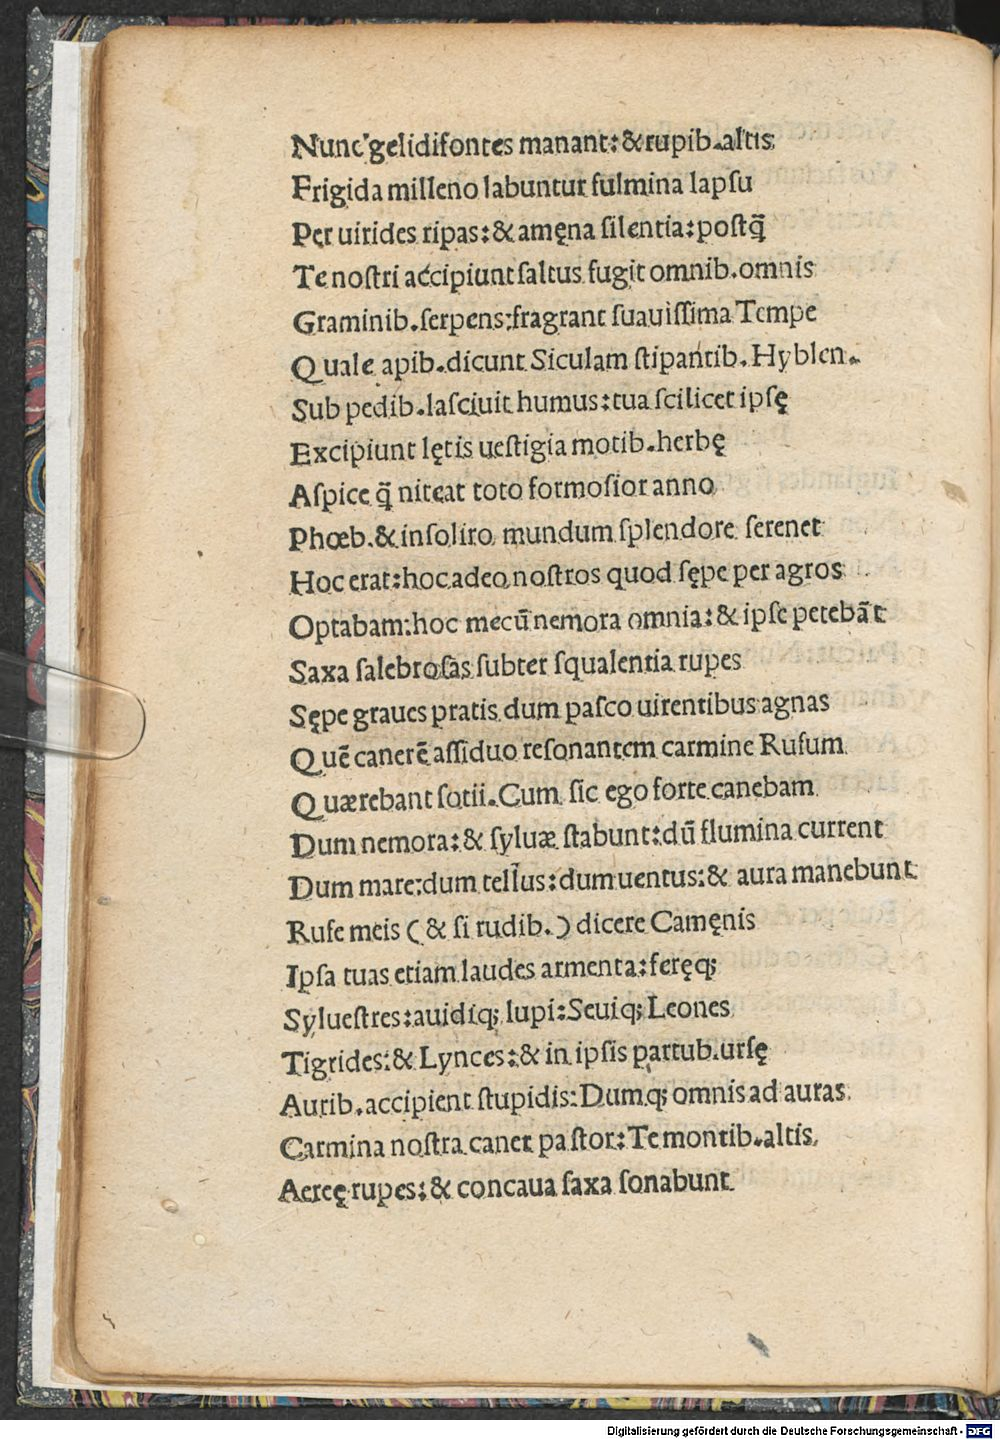 Nunc gelidi fontes manant: & rupib. altis
Frigida milleno labuntur fulmina lapsu
Per uirides ripas: & amęna silentia: postq̃
Te nostri accipiunt saltus fugit omnib. omnis
Graminib. serpens: fragrant suauissima Tempe
Quale apib. dicunt Siculam stipantib. Hyblen.
Sub pedib. lasciuit humus: tua scilicet ipsę
Excipiunt lętis uestigia motib. herbę
Aspice q̃ niteat toto formosior anno
Phœb. & insoliro mundum splendore serenet
Hoc erat: hoc adeo nostros quod sępe per agros
Optabam: hoc mecũ nemora omnia: & ipse petebãt
Saxa salebrosas subter squalentia rupes
Sępe graues pratis dum pasco uirentibus agnas
Quẽ canerẽ assiduo resonantem carmine Rufum
Quærebant sotii. Cum sic ego forte canebam
Dum nemora: & syluæ stabunt: dũ flumina current
Dum mare: dum tellus: dum uentus: & aura manebunt
Rufe meis (& si rudib.) dicere Camęnis
Ipsa tuas etiam laudes armenta: feręq;
Syluestres: auidiq; lupi: Seuiq; Leones
Tigrides: & Lynces: & in ipsis partub. ursę
Aurib. accipient stupidis: Dumq; omnis ad auras
Carmina nostra canet pastor: Te montib. altis
Aereę rupes: & concaua saxa sonabunt
Digitalisierung gefördert durch die Deutsche Forschungsgemeinschaft - DFG